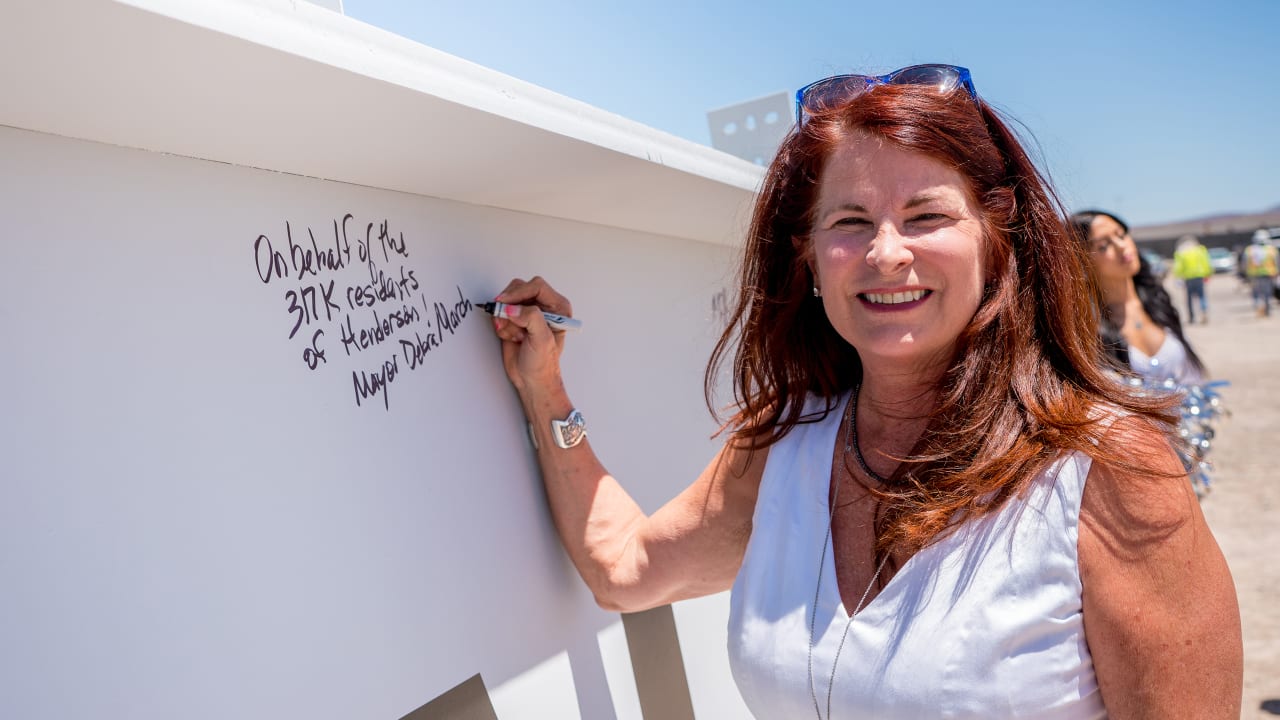 On behalf of the
317K residents
of Henderson!
Mayor Debra March